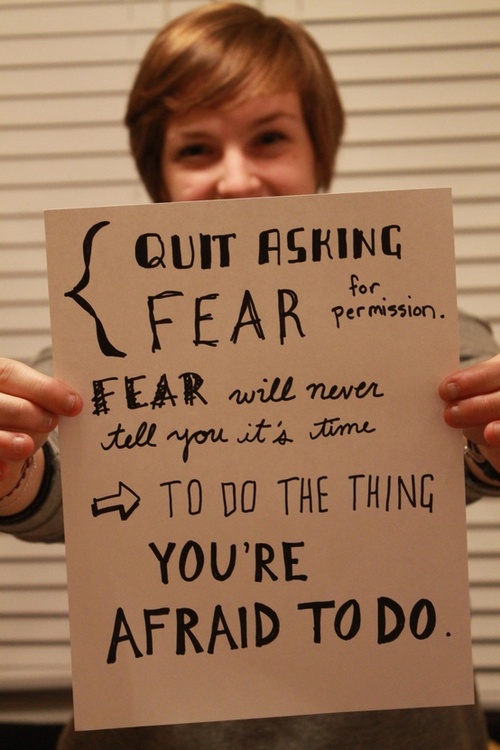 QUIT ASKING
FEAR for
permission.
FEAR will never
tell you it's time
TO DO THE THING
YOU'RE
AFRAID TO DO.